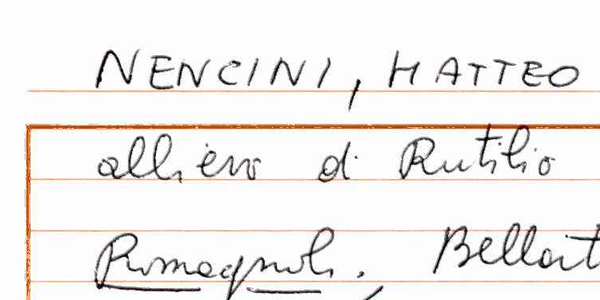 NENCINI, MATTEO
allievo di Rutilio
Romagnoli.